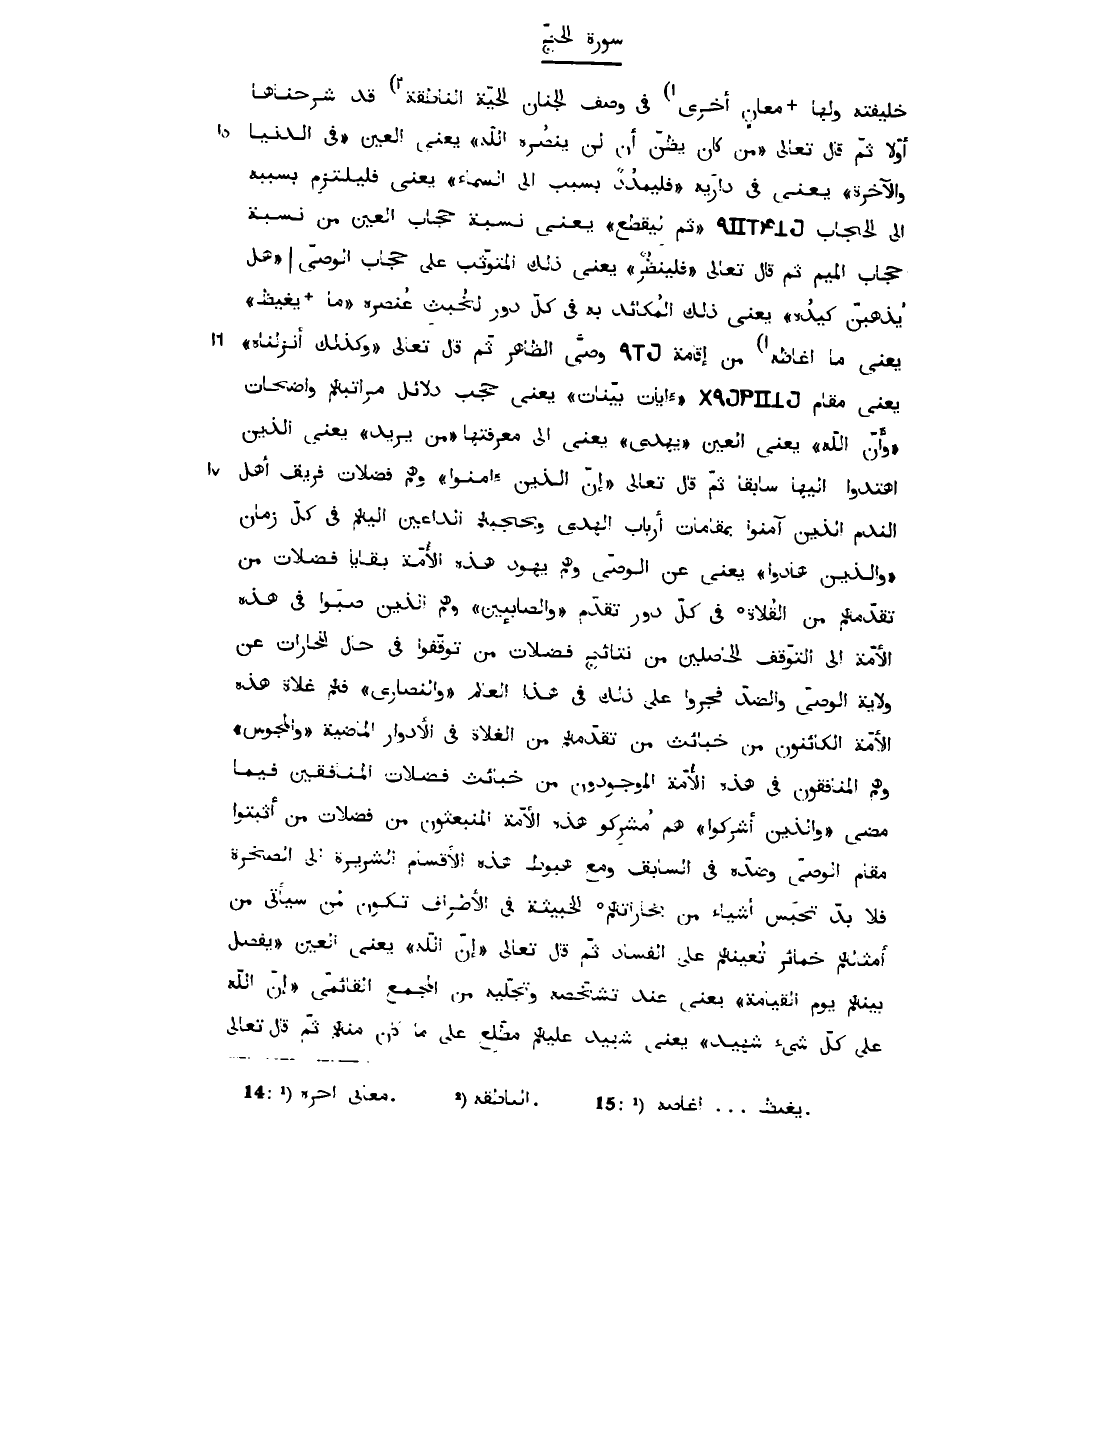 سورة الحجّ
خليفته ولها + معانٍ أخرى١) فى وصف الجنان الحيّة الناطقة٢) قد شرحناها
أوّلا ثمّ قال تعالى «من كان يظنّ أن لن ينصُره اللّه» يعنى العين «فى الدنيا ١٥
والآخرة» يعنى فى دارَيه «فليمدُدْ بسبب الى السماء» يعنى فليلتزم بسببه
الى الحجاب «ثم ليقطع» يعنى نسبة حجاب العين من نسبة
حجاب الميم ثم قال تعالى «فلينظُرْ» يعنى ذلك المتوثّب على حجاب الوصىّ | «هل
يُذهبنّ كيدُه» يعنى ذلك المُكائد به فى كلّ دور لخُبث عُنصره «ما + يغيظ»
يعنى ما اغاظه١) من إقامة وصىَّ الظاهر ثمّ قال تعالى «وكذلك أنزلناه» ١٦
يعنى مقام «ءايات بيّنات» يعنى حجب دلائل مراتبهم واضحات
«وأَنّ اللّه» يعنى العين «يهدى» يعنى الى معرفتها «من يريد» يعنى الذين
اهتدوا اليها سابقا ثمّ قال تعالى «إنّ الذين ءامنوا» وهم فضلات فريق أهل ١٧
الندم الذين آمنوا بمقامات أرباب الهدى وبحجبهم الداعين اليهم فى كلّ زمان
«والذين هادوا» يعنى عن الوصىّ وهم يهود هذه الأُمّة بقايا فضلات من
تقدّمهم من القُلاة° فى كلّ دور تقدّم «والصابِئين» وهم الذين صبَوا فى هذه
الأمّة الى التوّقف الحاصلين من نتائج فضلات من توقّفوا فى حال المحارات عن
ولاية الوصىّ والضدّ فجروا على ذلك فى هذا العالم «والنصارى» فهم غلاة هذه
الأمّة الكائنون من خبائث من تقدّمهم من الغلاة فى الأدوار الماضية «والمجوس»
وهم المنافقون فى هذه الأُمّة الموجودون من خبائث فضلات المنافقين فيما
مضى «والذين أشركوا» هم مُشركو هذه الأمّة المنبعثون من فضلات من أثبتوا
مقام الوصىّ وضدّه فى السابق ومع هبوط هذه الأقسام الشريرة الى الصخرة
فلا بدّ تحبّس أشياء من بخاراتهم° الخبيثة فى الأطراف تكون مُن سيأتى من
أمثالهم خمائر تُعينهم على الفساد ثمّ قال تعالى «إنّ اللّه» يعنى العين «يفصل
بينهم يوم القيامة» يعنى عند تشخّصه وتجلّيه من المجمع القائمىّ «إنّ اللّه
على كلّ شىء شهيد» يعنى شهيد عليهم مطّلع على ما كان منهم ثمّ قال تعالى
14: ¹) معنى احره. ²) الباطقه. 15: ¹) يغيظ ... اغاصه.